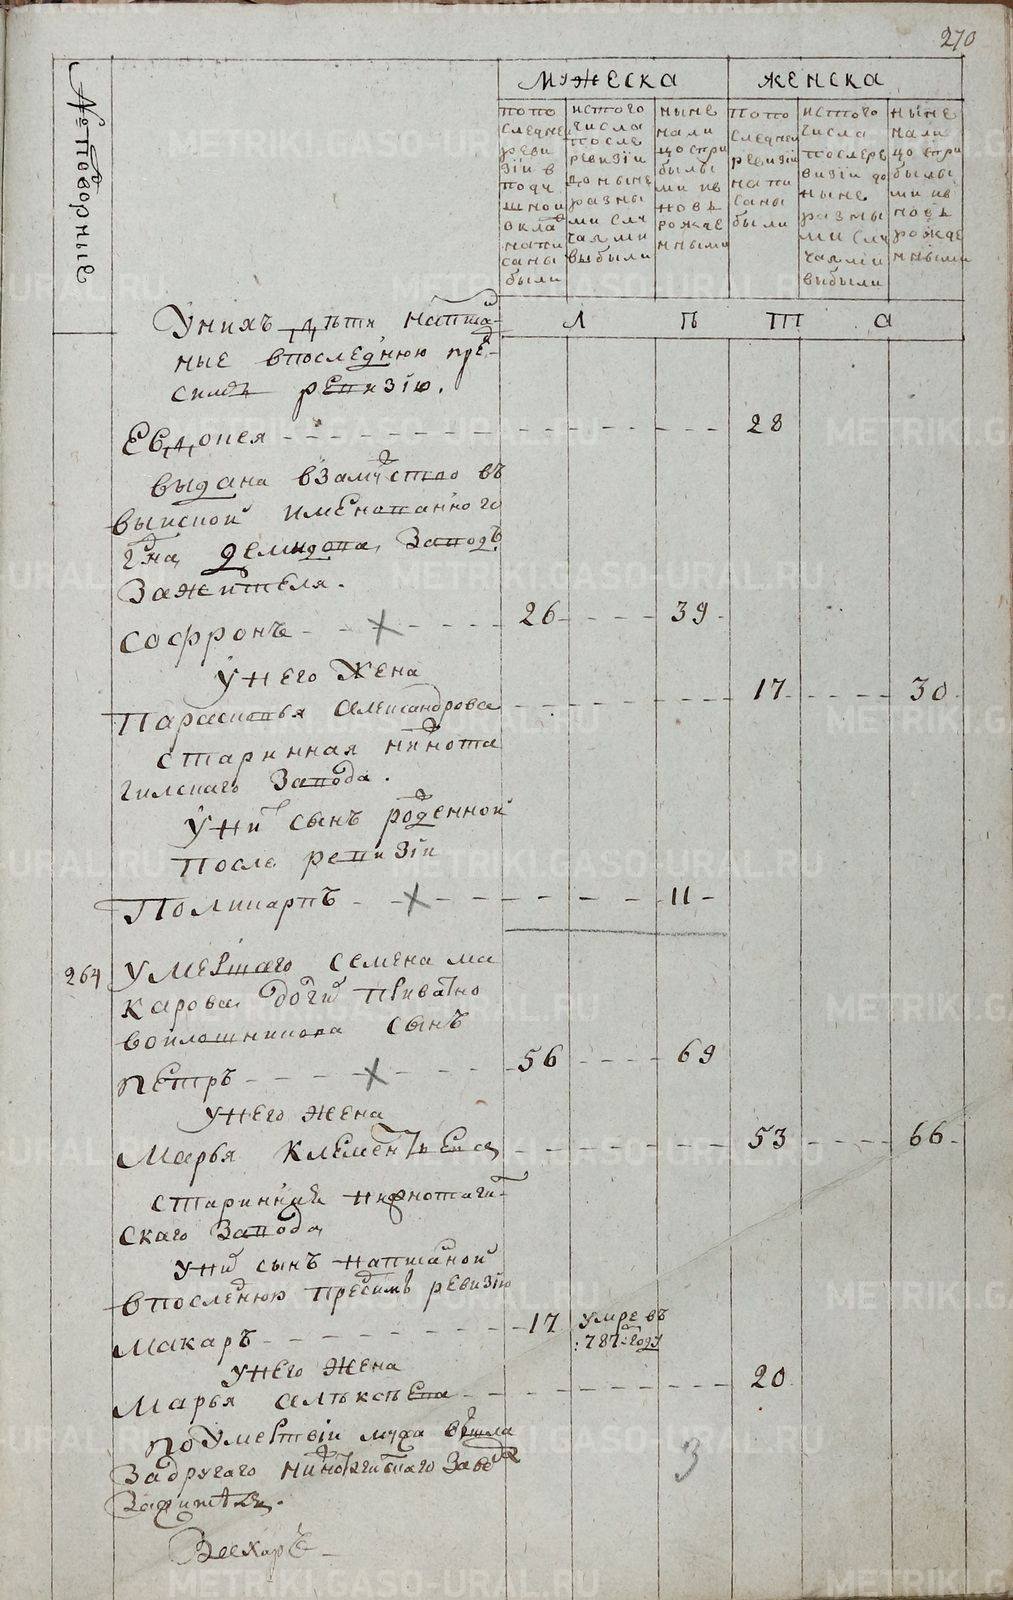 270
№ Дворныѣ
мужеска
женска
попо
следней
реви
зіи в
поду
шной
окла
напи
саны
были
исчого
числа
после
ревизіи
до ныне
разны
ми слу
чаями
выбыли
ныне
нали
цо спри
былы
ми ив
новь
рожде
нными
попо
следней
ревизіи
напи
саны
были
исчого
числа
послере
визіи до
ныне
разны
ми слу
чаями
выбыли
ныне
нали
цо спри
былы
ми ив
новь
рожде
нными
Л ѣ т а
Унихъ дѣти написа-
ные впоследнюю пре-
симъ ревизію.
Евдокея 28
выдана взамужство въ
выиской именованного
гдна демидова заводъ
зажителя.
Софронъ 26 39
Унего жена
Парасковья александрова 17 30
старинная нижнота
гилскаго завода.
Уни сынъ рожденной
после ревизіи
Поликарпъ 11
264 Умершаго семена ма
карова
воилошникова сынъ
петръ 56 69
унего жена
Марья клементьева 53 66
стариннаго нижнотаги-
скаго завода
уни сынъ написаной
впоследнюю пресимъ ревизію
макаръ 17 умре въ
:787: году
унего жена
марья алѣксѣева 20
поумертвіи мужа вышла
задругаго нижнотагилскаго заво
зажителя.
3